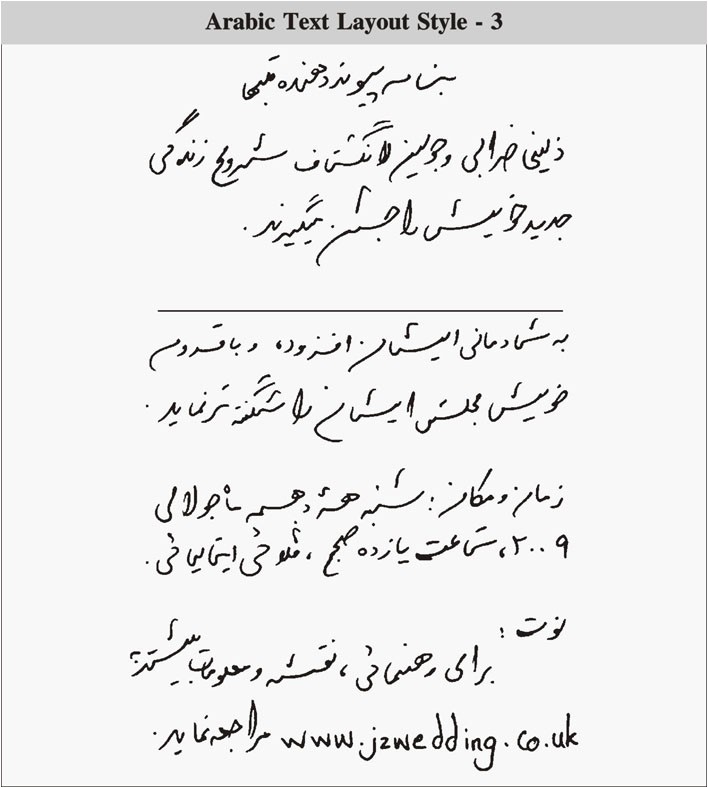 Arabic Text Layout Style - 3
بنامه پیوند دهنده قلبها
ذلینی ضرابی وجولین لانگشتاف شروع زندگی
جدید خویش را جشن میگیرند.
به شادمانی ایشان افزوده، و با قدوم
خویش مجلس ایشان را شگفته تر نماید.
زمان و مکان: شنبه دهم جولای
۲۰۰۹، ساعت یازده صبح، ایتالیائی.
نوت:
برای رهنمائی، نقشه و معلومات بیشتر
www.jzwedding.co.uk مراجعه نماید.